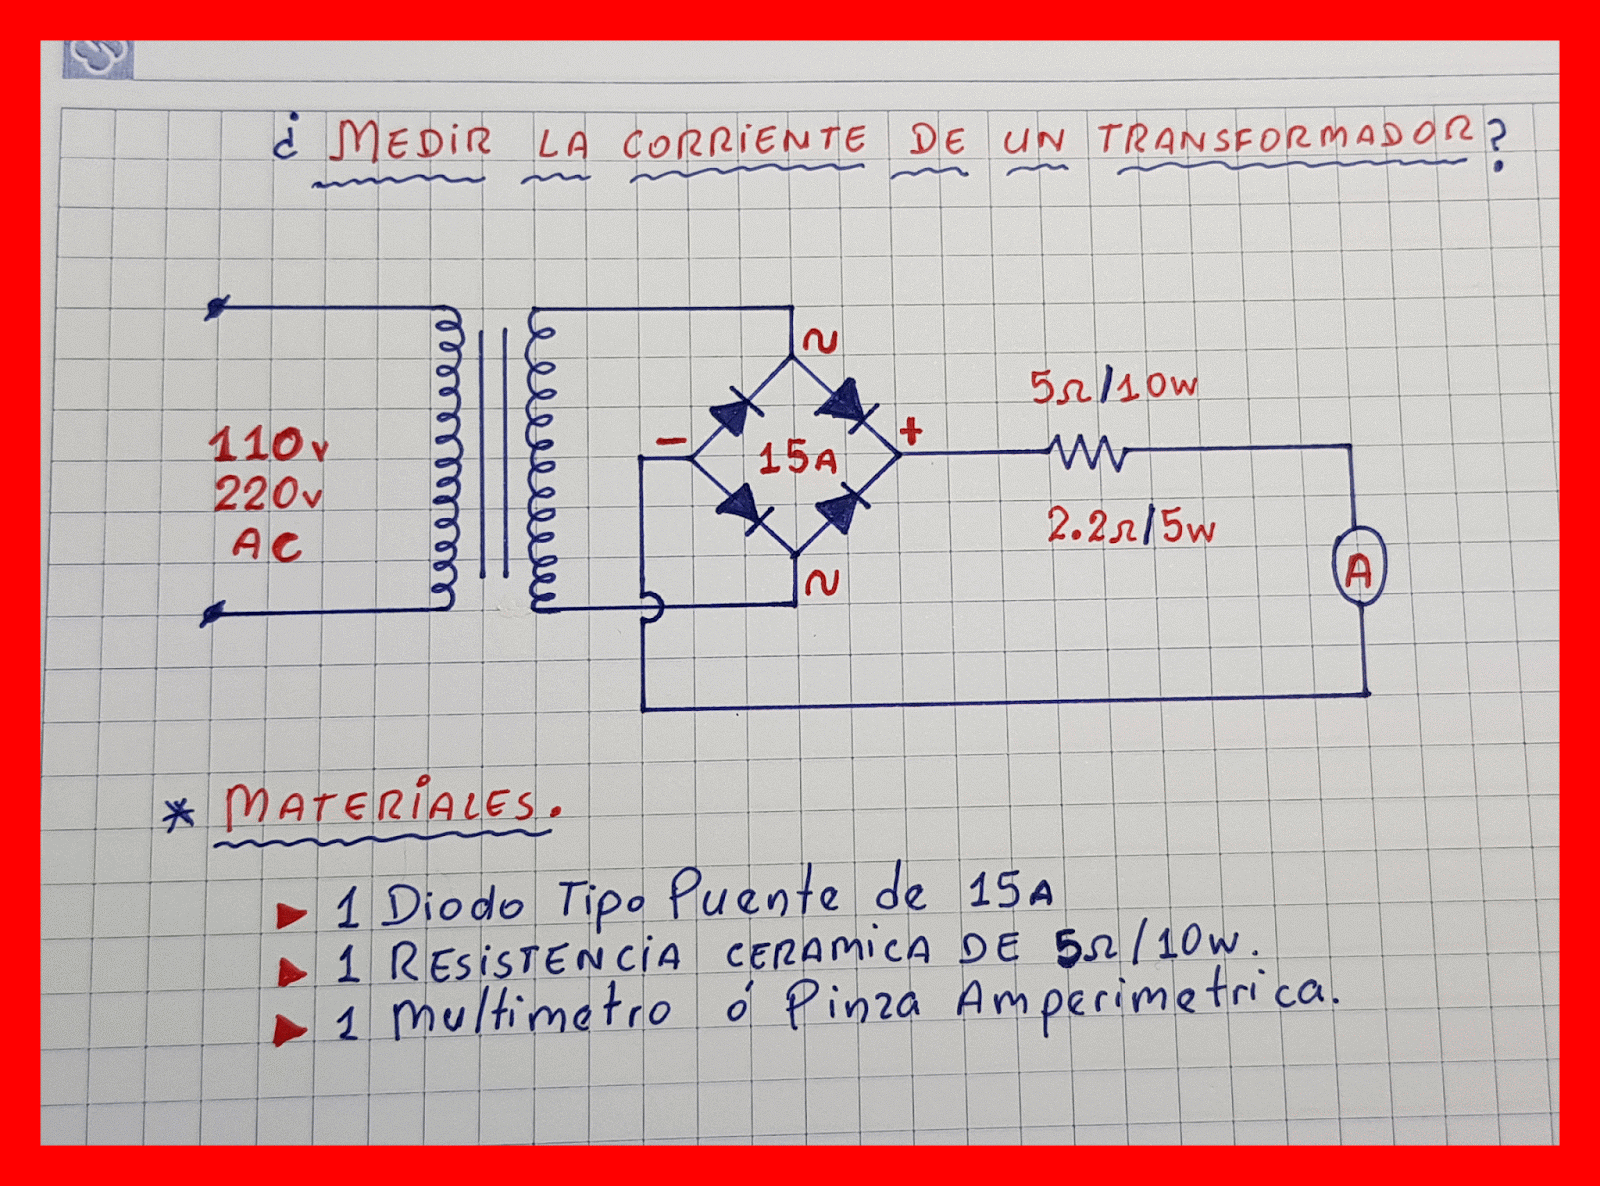 ¿MEDIR LA CORRIENTE DE UN TRANSFORMADOR?
~
5Ω/10W
110v
- 15A +
220v
2.2Ω/5W
AC
A
~
* MATERIALES.
► 1 Diodo Tipo Puente de 15A
► 1 RESISTENCIA CERAMICA DE 5Ω/10W.
► 1 Multimetro ó Pinza Amperimetrica.